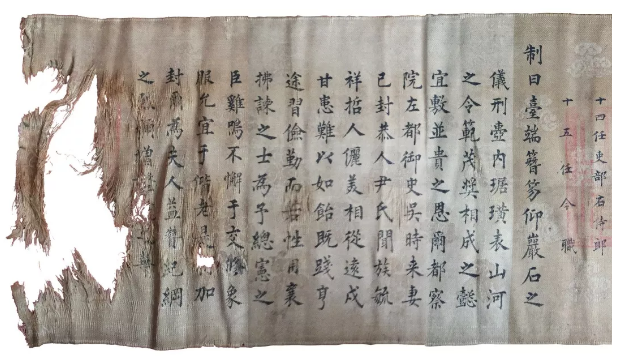 十四任吏部右侍郎
十五任今職
制曰臺端簪笏仰巖石之
儀刑壼内琚璜表山河
之令範茂奬相成之懿
宜敷並貴之恩爾都察
院左都御史吳時来妻
已封恭人尹氏閥族毓
祥哲人儷美相從遠戍
甘患難以如飴既踐亨
途習儉勤而若性用襄
拂諫之士為予總憲之
臣雞鳴不懈于交儆象
服允宜于偕老是加
封爾為夫人益贊紀綱
之